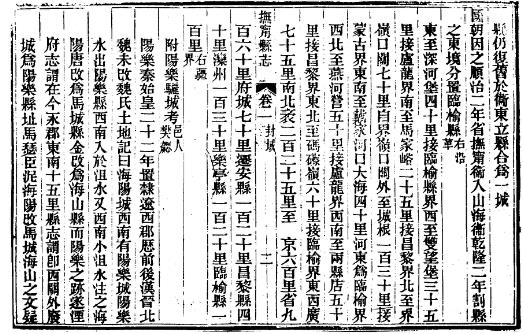 縣仍復舊於衞東立縣合爲一城
國朝因之順治二年省撫甯衞入山海衞乾隆二年割縣
之東境分置臨榆縣右沿革
東至深河堡四十里接臨榆縣界西至雙望堡三十五
里接盧龍界南至馬家峪二十五里接昌黎界北至界
嶺口關七十里自界嶺口關外至城根一百三十里接
蒙古界東南至
口大海四十里河東爲臨榆界
西北至燕河營五十里接盧龍界西南至兩縣店五十
里接昌黎界東北至
嶺六十里接臨榆界東西廣
七十五里南北袤二百二十五里至 京六百里省九
撫甯縣志 卷一 封域 二
百六十里府城七十里遷安縣一百二十里昌黎縣四
十里灤州一百三十里樂亭縣一百二十里臨榆縣一
百里右疆界
附陽樂驪城考邑人
陽樂秦始皇二十二年置隸遼西郡歷前後漢晉北
魏未改魏氏土地記曰海陽城西南有陽樂城陽樂
水出陽樂縣西南入於沮水又西南小沮水注之海
陽唐改爲馬城縣金改爲海山縣而陽樂之跡遂湮
府志謂在今永郡東南十五里縣志謂卽西關外廢
城爲陽樂縣址馬瑟臣泥海陽改馬城海山之文疑